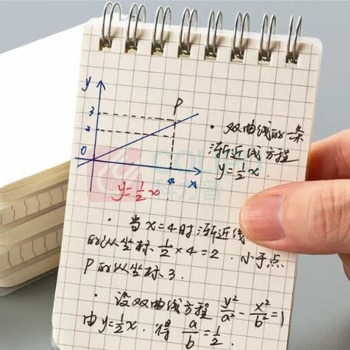 y
P
3
2
0
4
x
y=½x
· 双曲线的一条
渐近线方程
y=½x.
· 当x=4时渐近线
的纵坐标½×4=2. 小于点
P的纵坐标3.
· 设双曲线方程 y²/a² - x²/b² =1
由y=½x. 得 a/b = ½.